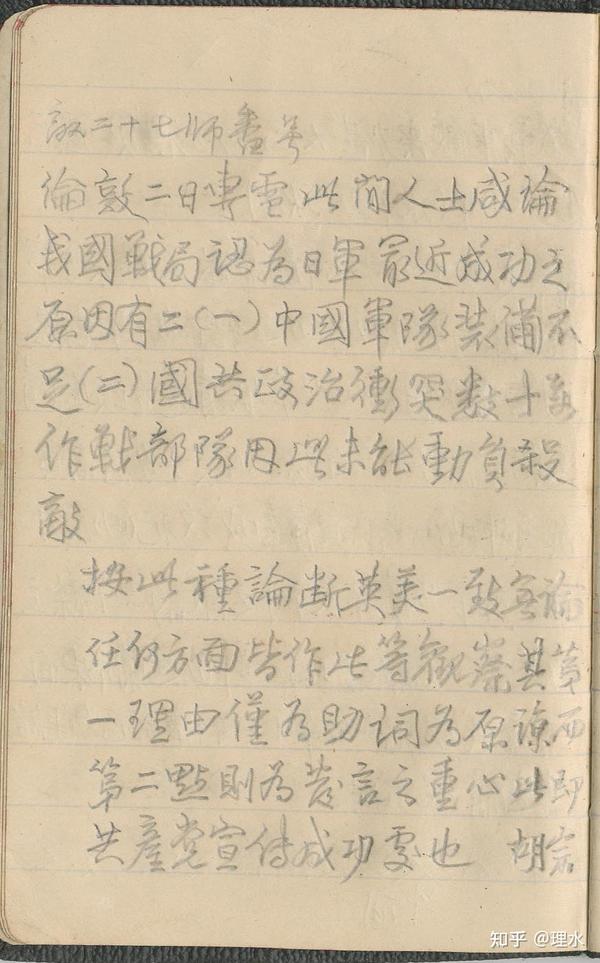 敵二十七師番号
倫敦二日專電此間人士咸論
我國戰局認為日軍最近成功之
原因有二(一)中國軍隊裝備不
足(二)國共政治衝突数十萬
作戰部隊因此未能動員殺
敵
按此種論斷英美一致無論
任何方面皆作此等觀察其第
一理由僅為助詞為原諒而
第二點則為發言之重心此即
共產党宣傳成功處也 胡宗
知乎 @理水